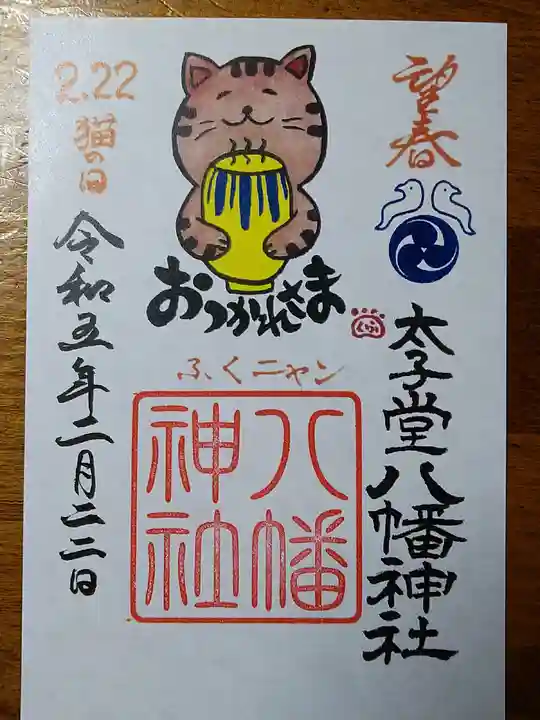 望春
太子堂八幡神社
おつかれさま
ふくニャン
八幡
神社
2.22
猫の日
令和五年二月二二日